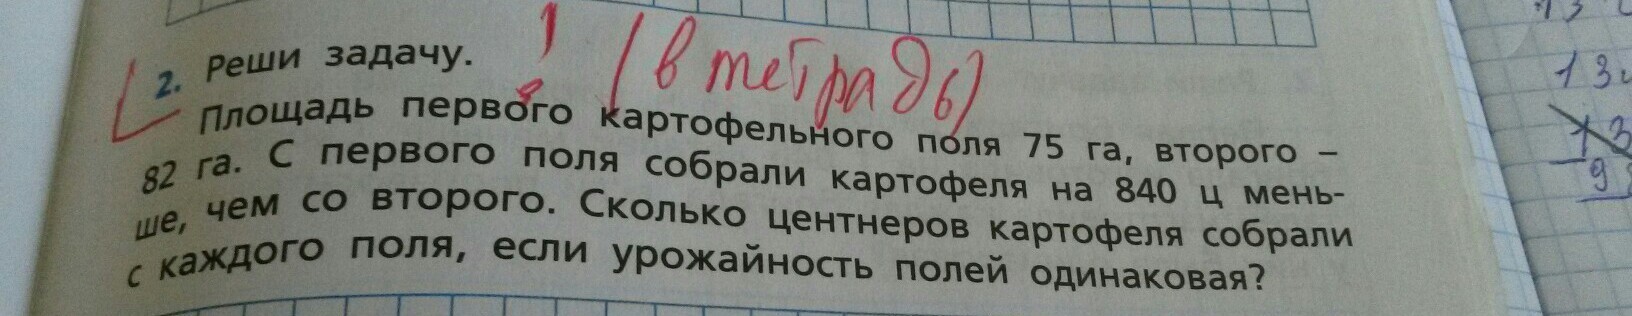 2. Реши задачу. ! (в тетрадь)
Площадь первого картофельного поля 75 га, второго –
82 га. С первого поля собрали картофеля на 840 ц мень-
ше, чем со второго. Сколько центнеров картофеля собрали
с каждого поля, если урожайность полей одинаковая?